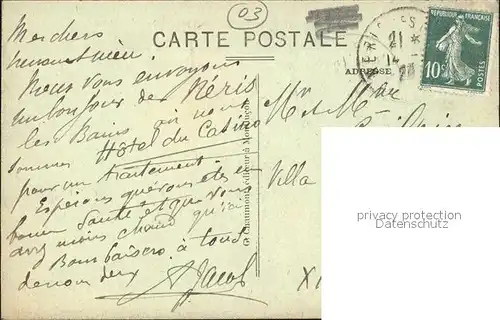 03
CARTE POSTALE
ADRESSE
RÉPUBLIQUE FRANÇAISE
10c
POSTES
21
Mes chers
Nous vous envoyons
un bonjour de Néris
les Bains où nous
sommes Hôtel du Casino
pour un traitement.
Espérons que vous êtes en
bonne Santé et que vous
avez moins chaud qu'ici
Bons baisers à tous
de nous deux
A Jacob
Mr et Mme
Villa
privacy protection
www.oldthing.de